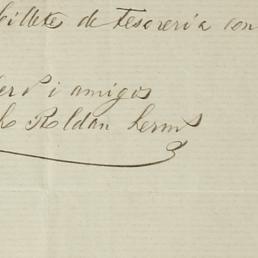 billetes de tesoreria con
i amigos
Roldan herm